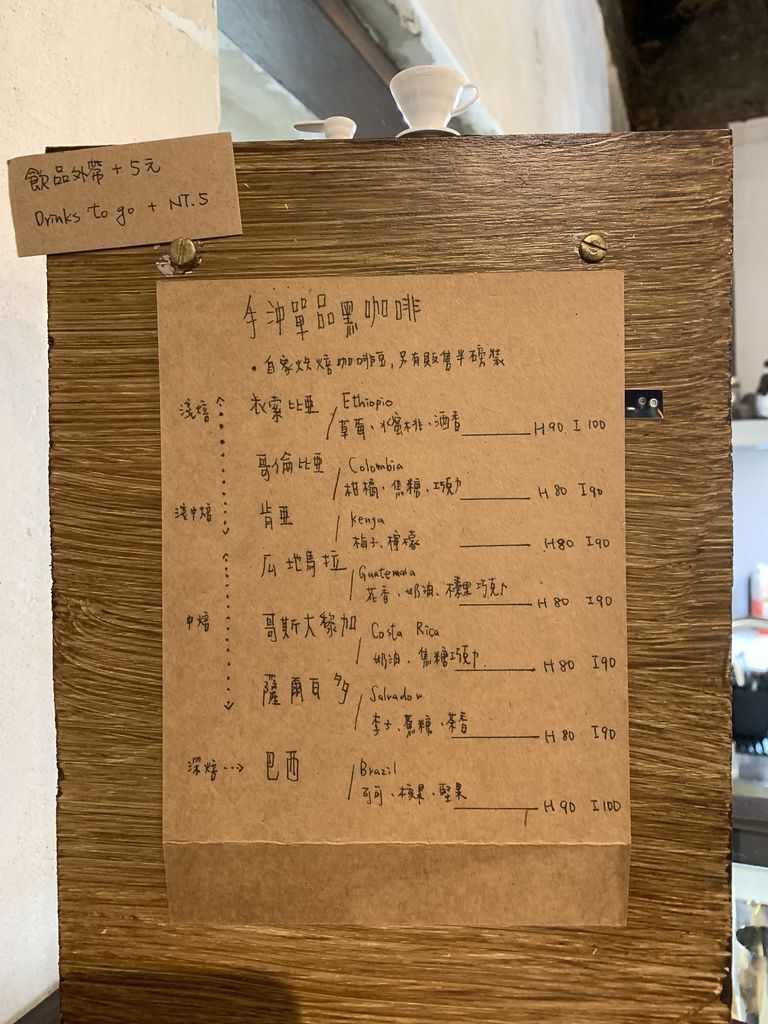 飲品外帶+5元
Drinks to go + NT.5
手沖單品黑咖啡
• 自家烘焙咖啡豆,另有販售半磅裝
淺焙 衣索比亞 / Ethiopia
草莓、水蜜桃、酒香 H90 I100
哥倫比亞 / Colombia
柑橘、焦糖、巧克力 H80 I90
淺中焙 肯亞 / Kenya
梅子、檸檬 H80 I90
瓜地馬拉 / Guatemala
花香、奶油、榛果巧克力 H80 I90
中焙 哥斯大黎加 / Costa Rica
奶油、焦糖巧克力 H80 I90
薩爾瓦多 / Salvador
李子、蔗糖、茶香 H80 I90
深焙 巴西 / Brazil
可可、核果、堅果 H90 I100